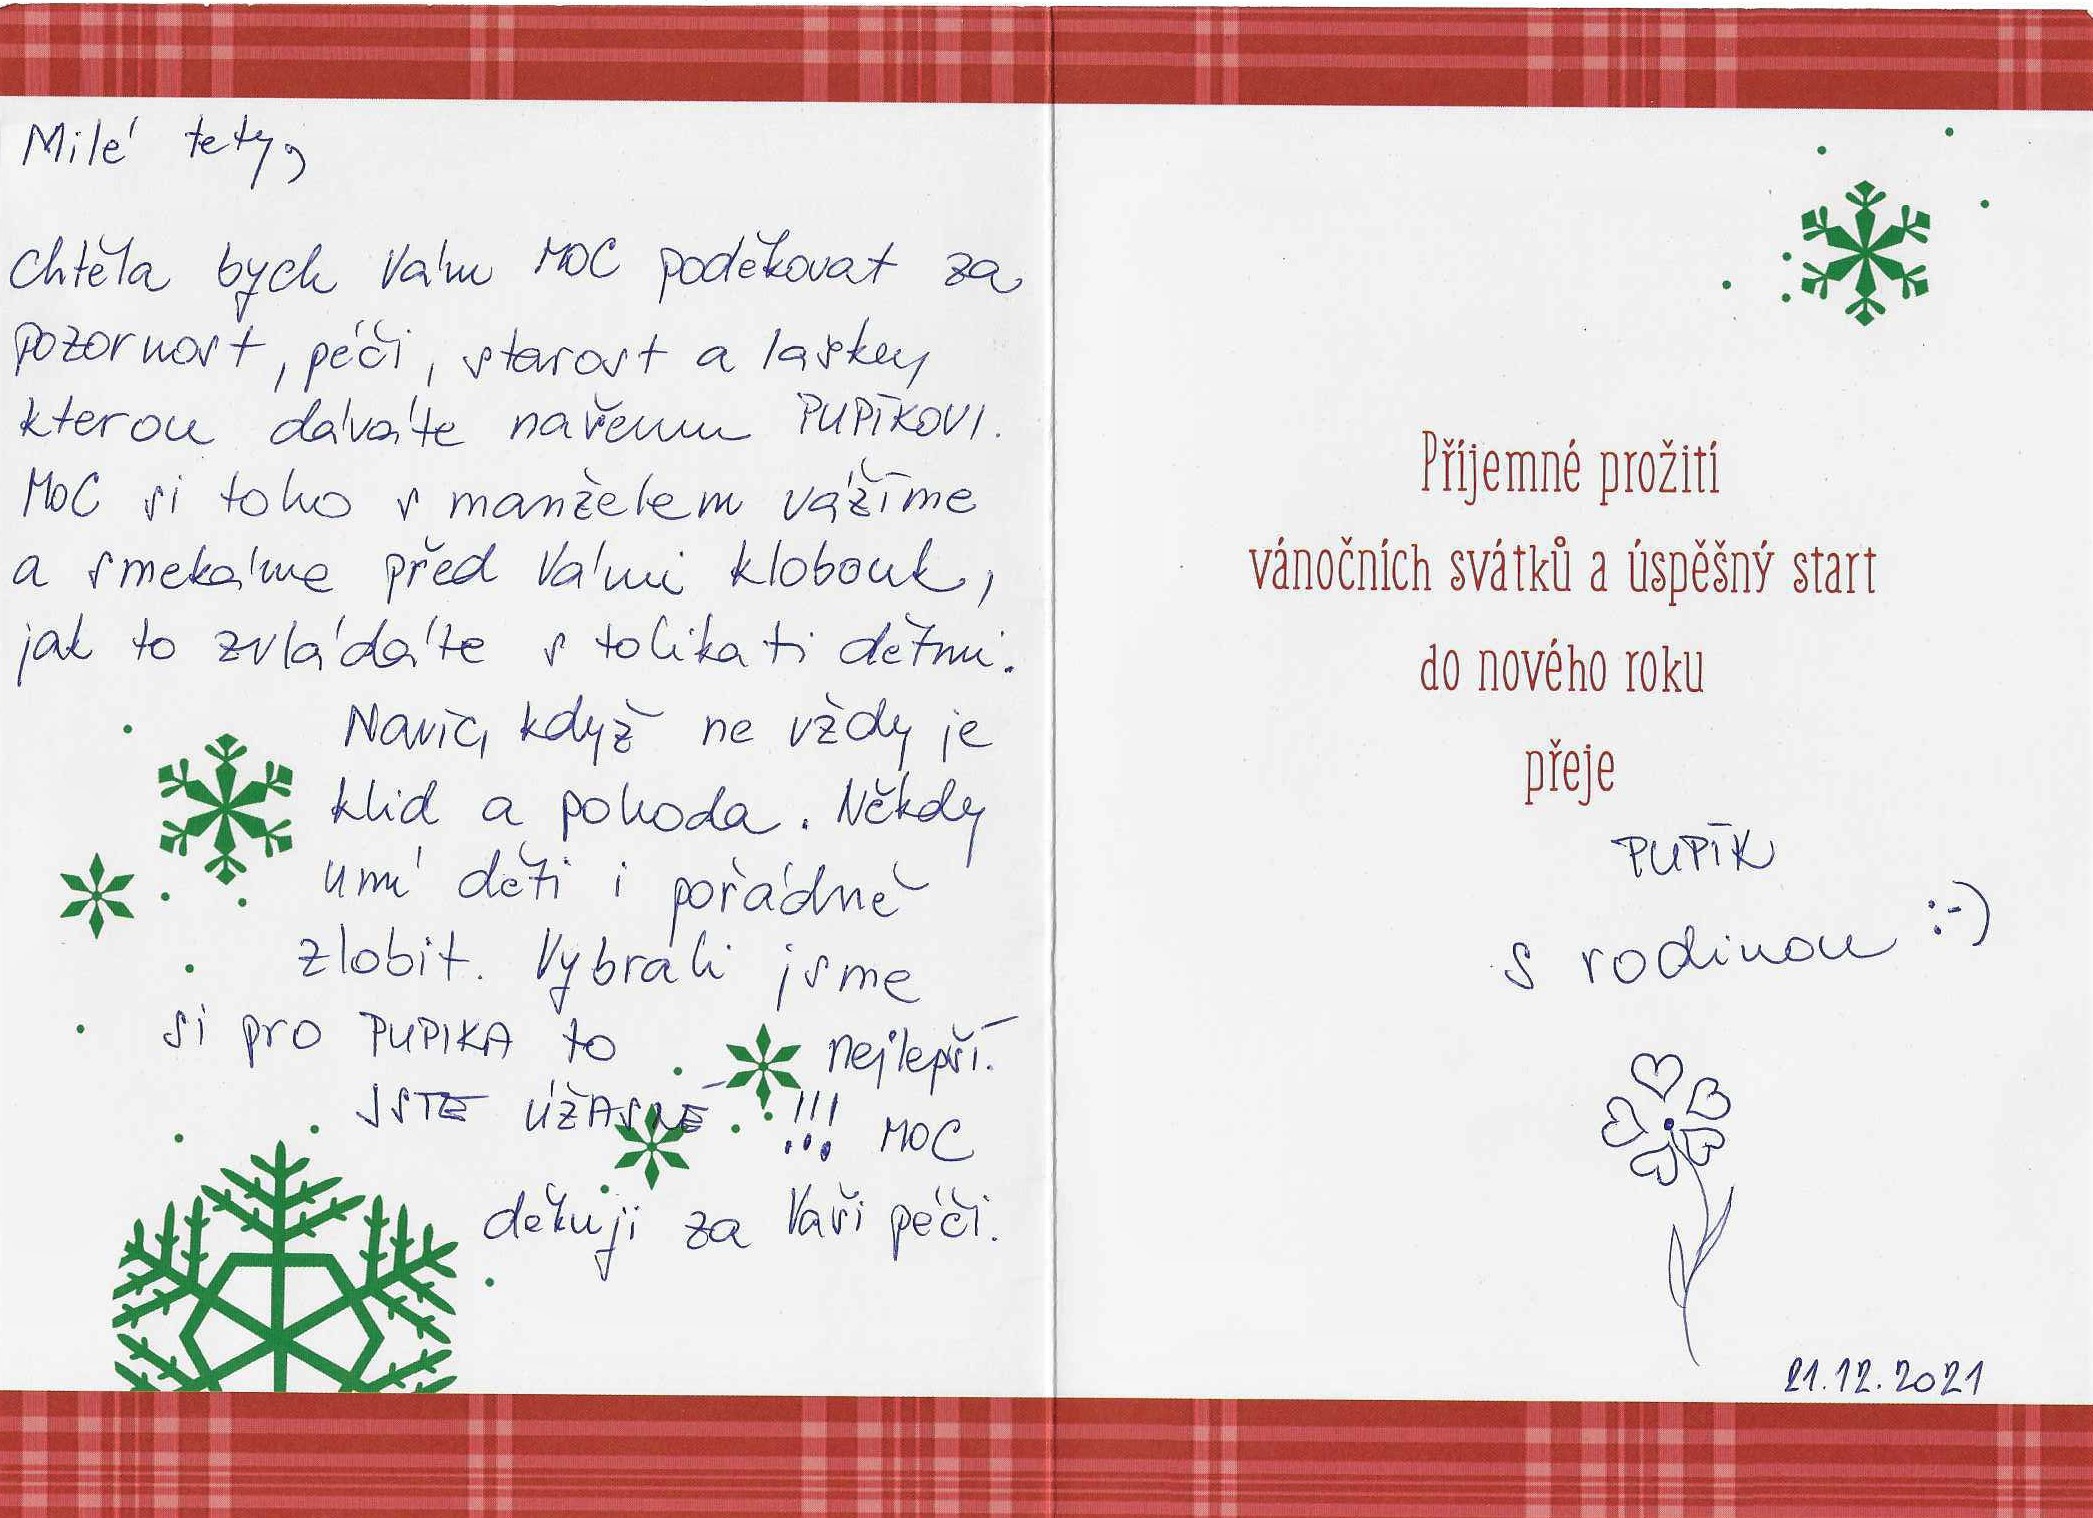 Milé tety,
chtěla bych Vám MOC poděkovat za
pozornost, péči, starost a lásku,
kterou dáváte našemu PUPÍKOVI.
MOC si toho s manželem vážíme
a smekáme před Vámi klobouk,
jak to zvládáte s tolikati dětmi.
Navíc, když ne vždy je
klid a pohoda. Někdy
umí děti i pořádně
zlobit. Vybrali jsme
si pro PUPIKA to nejlepší.
JSTE ÚŽASNÉ !!! MOC
děkuji za Vaši péči.
Příjemné prožití
vánočních svátků a úspěšný start
do nového roku
přeje
PUPÍK
s rodinou :-)
21.12.2021